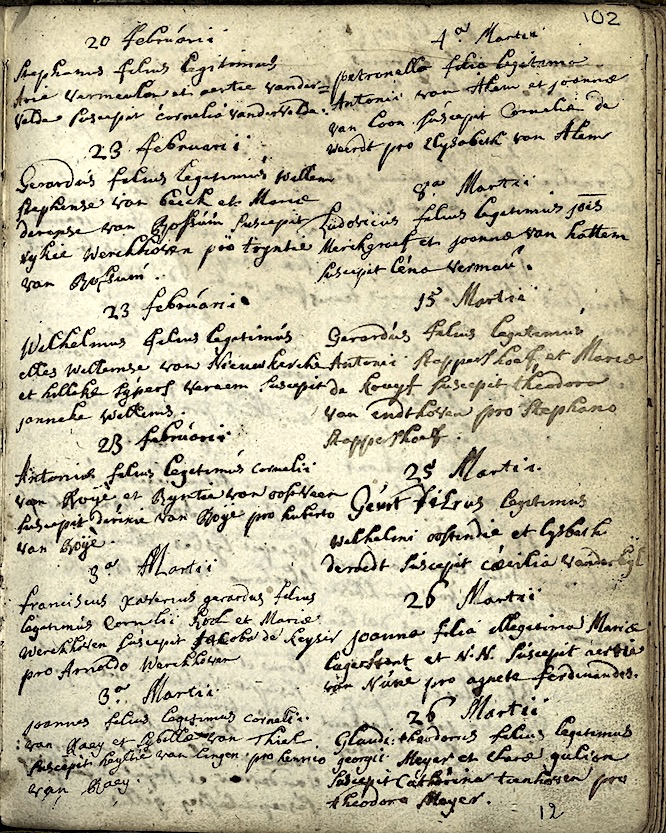 102
20 februarii
Stephanus filius legitimus
Arie Vermeulen et aertie vander-
velde suscepit cornelia vandervelde.
23 februarii
Gerardus filius legitimus Willem
Stephense van et Mariæ
van Rossum suscepit
Werckhoven pro tryntie
van Rossum.
23 februarii
Wilhelmus filius legitimus
elles Willemse van Nieuwkercke
et hilleke suscepit
janneke Willems.
23 februarii
Antonius filius legitimus cornelii
van Roije et van oostveen
suscepit van Roije pro huberto
van Roije.
3ª Martii
franciscus xaverius gerardus filius
legitimus Cornelii Kock et Mariæ
Werckhoven suscepit Jacoba de Keyser
pro Arnoldo Werckhoven
3ª Martii
joannes filius legitimus cornelii
van Raey et van Thiel
suscepit van lingen pro henrico
van Raey.
4ª Martii
petronella filia legitima
Antonii van Alem et joannæ
van Loon suscepit Cornelia de
Weerdt pro Elysabeth van Alem
8ª Martii
Ludovicus filius legitimus jois
Merckgraef et joannæ van hattem
suscepit
15 Martii
Gerardus filius legitimus
Antonii Stappershoef et Mariæ
de Kruyf suscepit theodora
van Endthoven pro Stephano
Stappershoef.
25 Martii.
Geurt filius legitimus
Wilhelmi oostindie et lysbeth
suscepit cæcilia
26 Martii
joanna filia illegitima Mariæ
et N.N. suscepit aertie
van pro agneta ferdinandes.
26 Martii
theodorus filius legitimus
georgii Meyer et
suscepit Catharina pro
theodora Meyer.
12